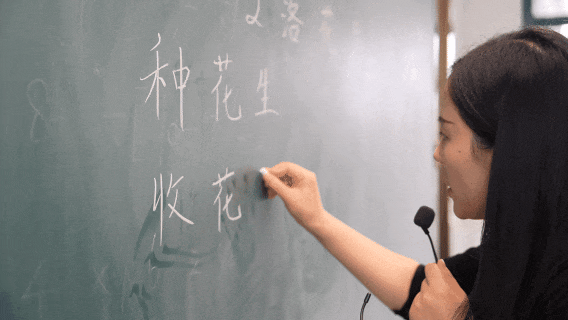 种花生
收花